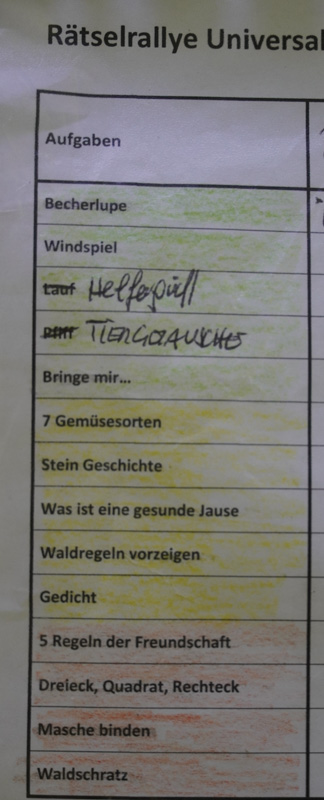 Rätselrallye Universal
Aufgaben
Becherlupe
Windspiel
Lauf Helferspiel
Pfiff TIERGERÄUSCHE
Bringe mir...
7 Gemüsesorten
Stein Geschichte
Was ist eine gesunde Jause
Waldregeln vorzeigen
Gedicht
5 Regeln der Freundschaft
Dreieck, Quadrat, Rechteck
Masche binden
Waldschratz